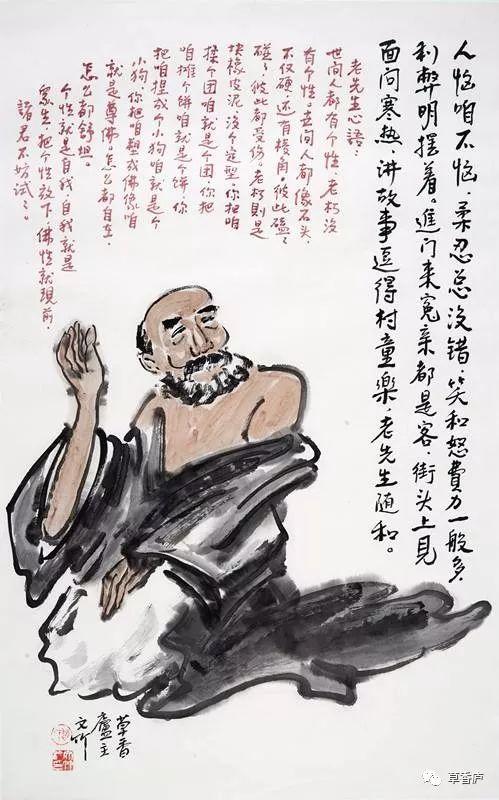 人恼咱不恼,柔忍总没错,笑和怒费力一般多,
利弊明摆着。進门来冤亲都是客,街头上見
面问寒热,讲故事逗得村童樂,老先生随和。
老先生心語:
世间人都有个性,老朽没
有个性。世间人都像石头,
不仅硬,还有棱角,彼此磕々
碰々,彼此都受伤。老朽則是
块橡皮泥,没个定型,你把咱
揉个团咱就是个团,你把
咱摊个饼咱就是个饼,你
把咱捏成个小狗咱就是个
小狗,你把咱塑成佛像咱
就是尊佛,怎么都自在,
怎么都舒坦。
个性就是自我,自我就是
眾生,把个性放下,佛性就現前,
諸君不妨試々。
草香
廬主
文竹
草香庐